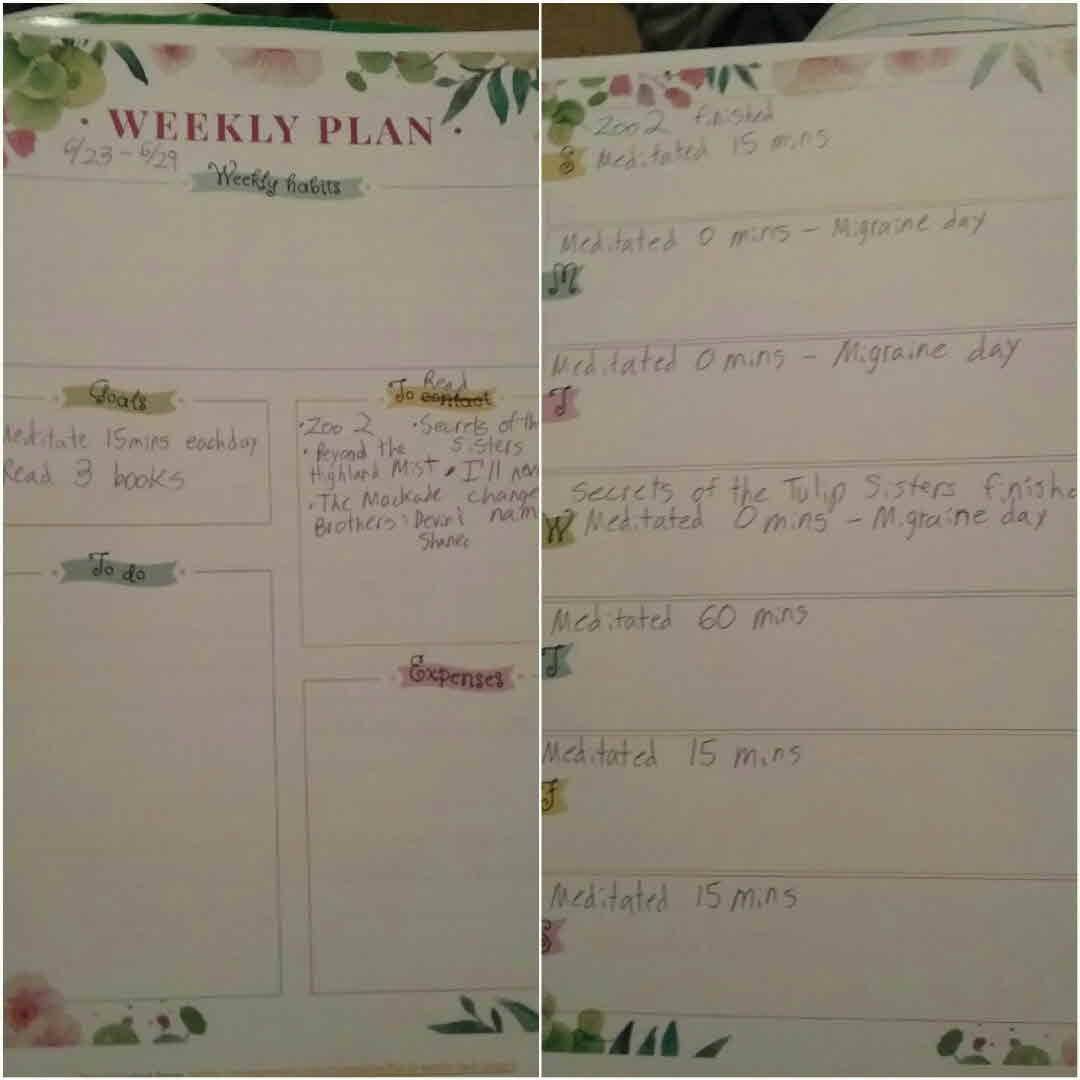 WEEKLY PLAN
6/23 - 6/29
Weekly habits
Goals
Meditate 15mins each day
Read 3 books
To do
Read
To contact
· Zoo 2 · Secrets of th
Sisters
· Beyond the
Highland Mist · I'll nev
· The Mackade change
Brothers: Devin & nam
Shane
Expenses
Zoo 2 finished
S Meditated 15 mins
Meditated 0 mins - Migraine day
M
Meditated 0 mins - Migraine day
T
Secrets of the Tulip Sisters finishe
W Meditated 0 mins - Migraine day
Meditated 60 mins
T
Meditated 15 mins
F
Meditated 15 mins
S